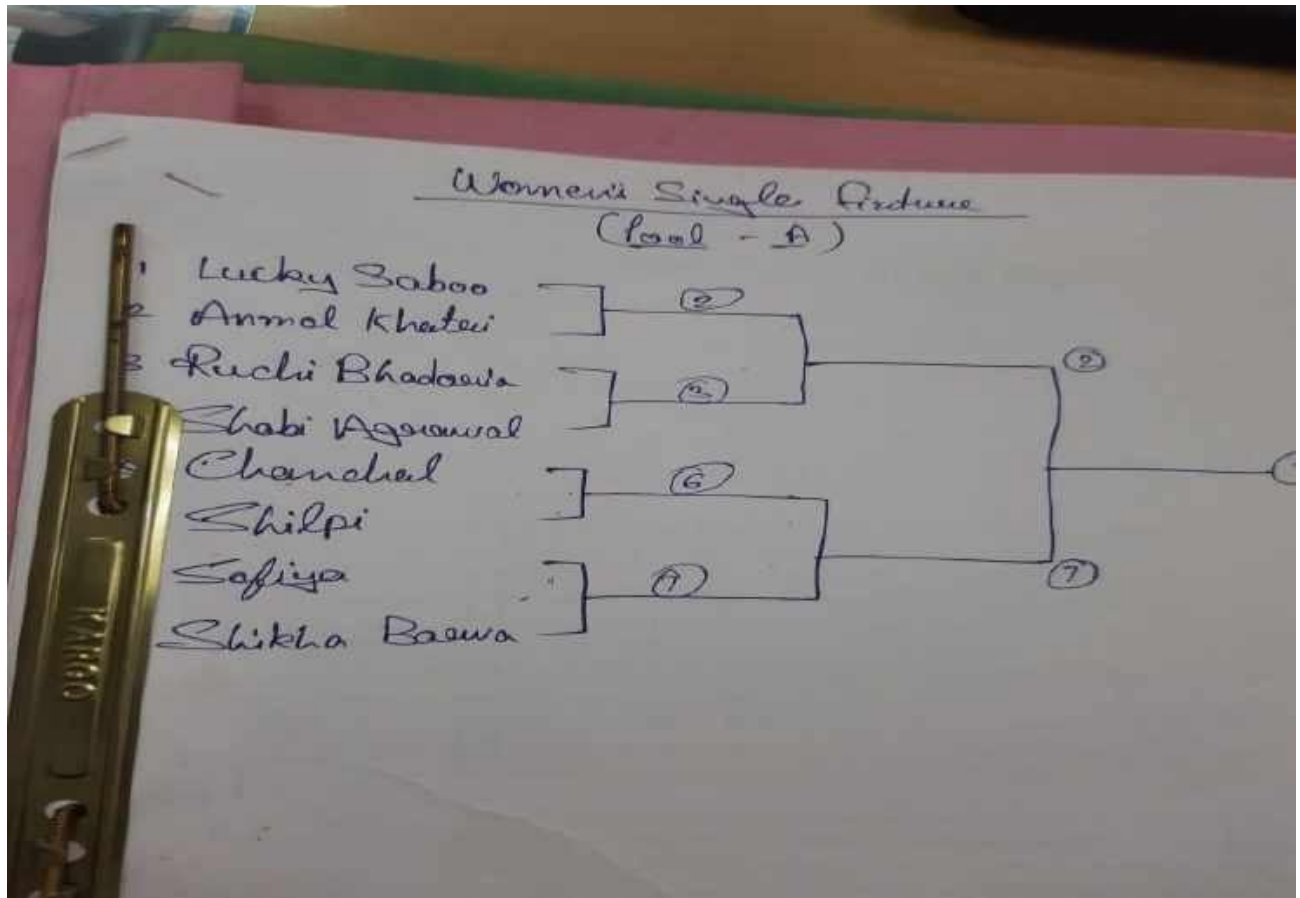 Women's Single Fixture
(Pool - A)
1 Lucky Saboo
2 Anmol Khateri
3 Ruchi Bhadauria
Shabi Agrawal
Chanchal
Shilpi
Safiya
Shikha Barwa
2
3
6
7
2
7
KANGO